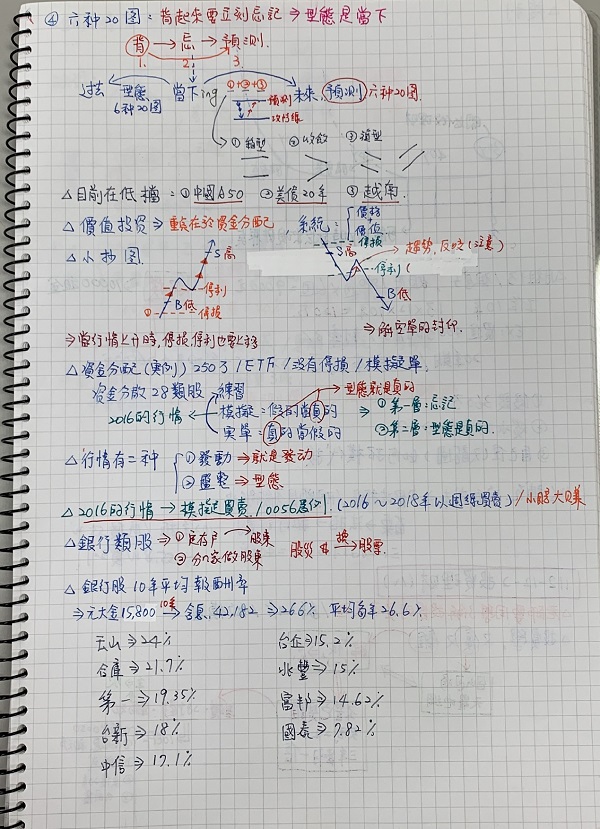 ④ 六种20图:背起來要立刻忘記⇒型態是當下
背→忘→預測.
1. 2. 3.
過去 型態 當下ing ①+②+③ 未來,預測六种20图.
6种20图 預測
①箱型 ②收斂 ③通型
△目前在低檔:①中國A50 ②美债20年 ③越南.
△價值投资⇒重点在於資金分配,系統:價格+價值
△小抄图.
S高 停利 B低 停损 ①
停损 S高 趨勢,反時(注意) 停利( B低
⇒當行情上升時,停損,停利也要上移 ⇒解空單的封印.
△資金分配(實例)250万/ETF/沒有停損/模擬單.
資金分散28類股 練習 型態就是真的
2016的行情 模擬:假的當真的 ⇒①第一層:忘記
实單:真的當假的 ②第二層:型態是真的.
△行情有二种 ①發動→就是發动
②盤整→型態
△2016的行情→模擬買賣/0056居例.(2016~2018年以週線買賣)/小賠大賺
△銀行類股⇒①定存戶→股東
②分一家做股東 股災 換→股票.
△銀行股10年平均報酬率
⇒元大金15,800 10年→含息,42.182⇒266% 平均每年26.6%
玉山⇒24% 台企⇒15.2%
合庫⇒21.7% 兆豐⇒15%
第一⇒19.35% 富邦⇒14.62%
台新⇒18% 國泰⇒7.82%
中信⇒17.1%